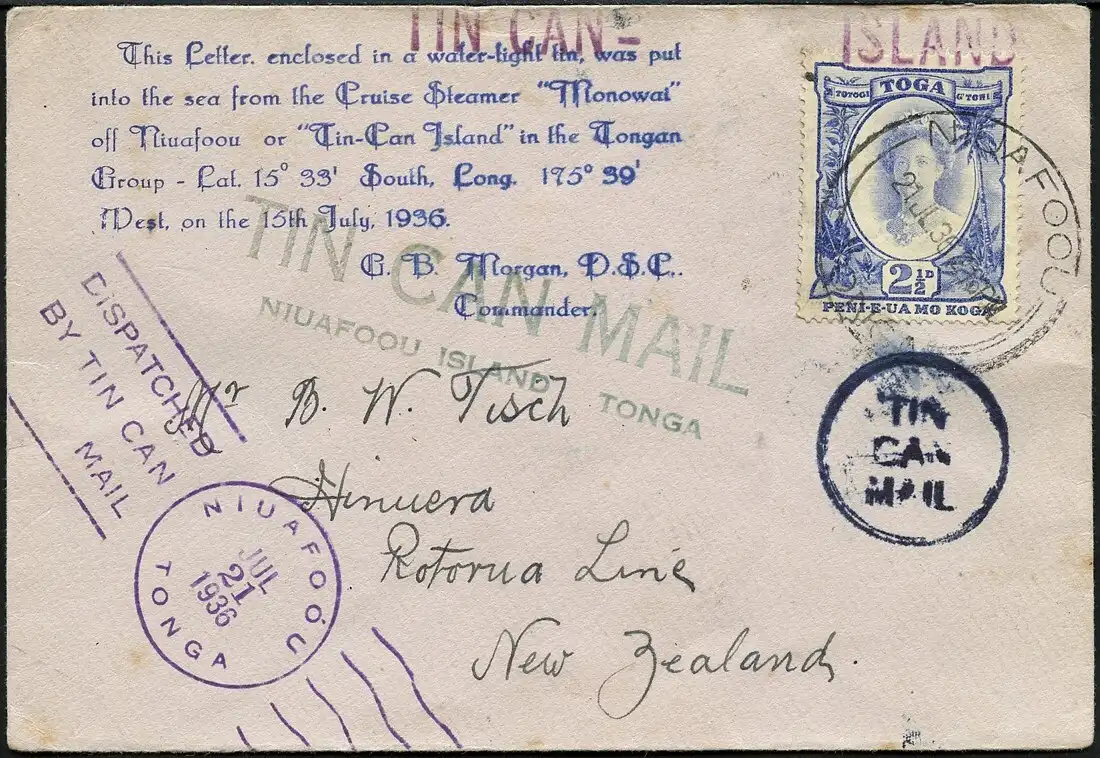 TIN CAN-
ISLAND
This Letter. enclosed in a water-tight tin, was put
into the sea from the Cruise Steamer "Monowai"
off Niuafoou or "Tin-Can Island" in the Tongan
Group - Lat. 15° 33' South, Long. 175° 39'
West, on the 15th July, 1936.
G. B. Morgan, D.S.C,.
Commander.
TOGA
2½D
PENI-E-UA MO KOGA
NIUAFOOU
21 JL 36
TIN CAN MAIL
NIUAFOOU ISLAND TONGA
DISPATCHED
BY TIN CAN
MAIL
Mr B. W. Tisch
Hinuera
Rotorua Line
New Zealand.
TIN
CAN
MAIL
NIUAFOO'U
JUL
21
1936
TONGA